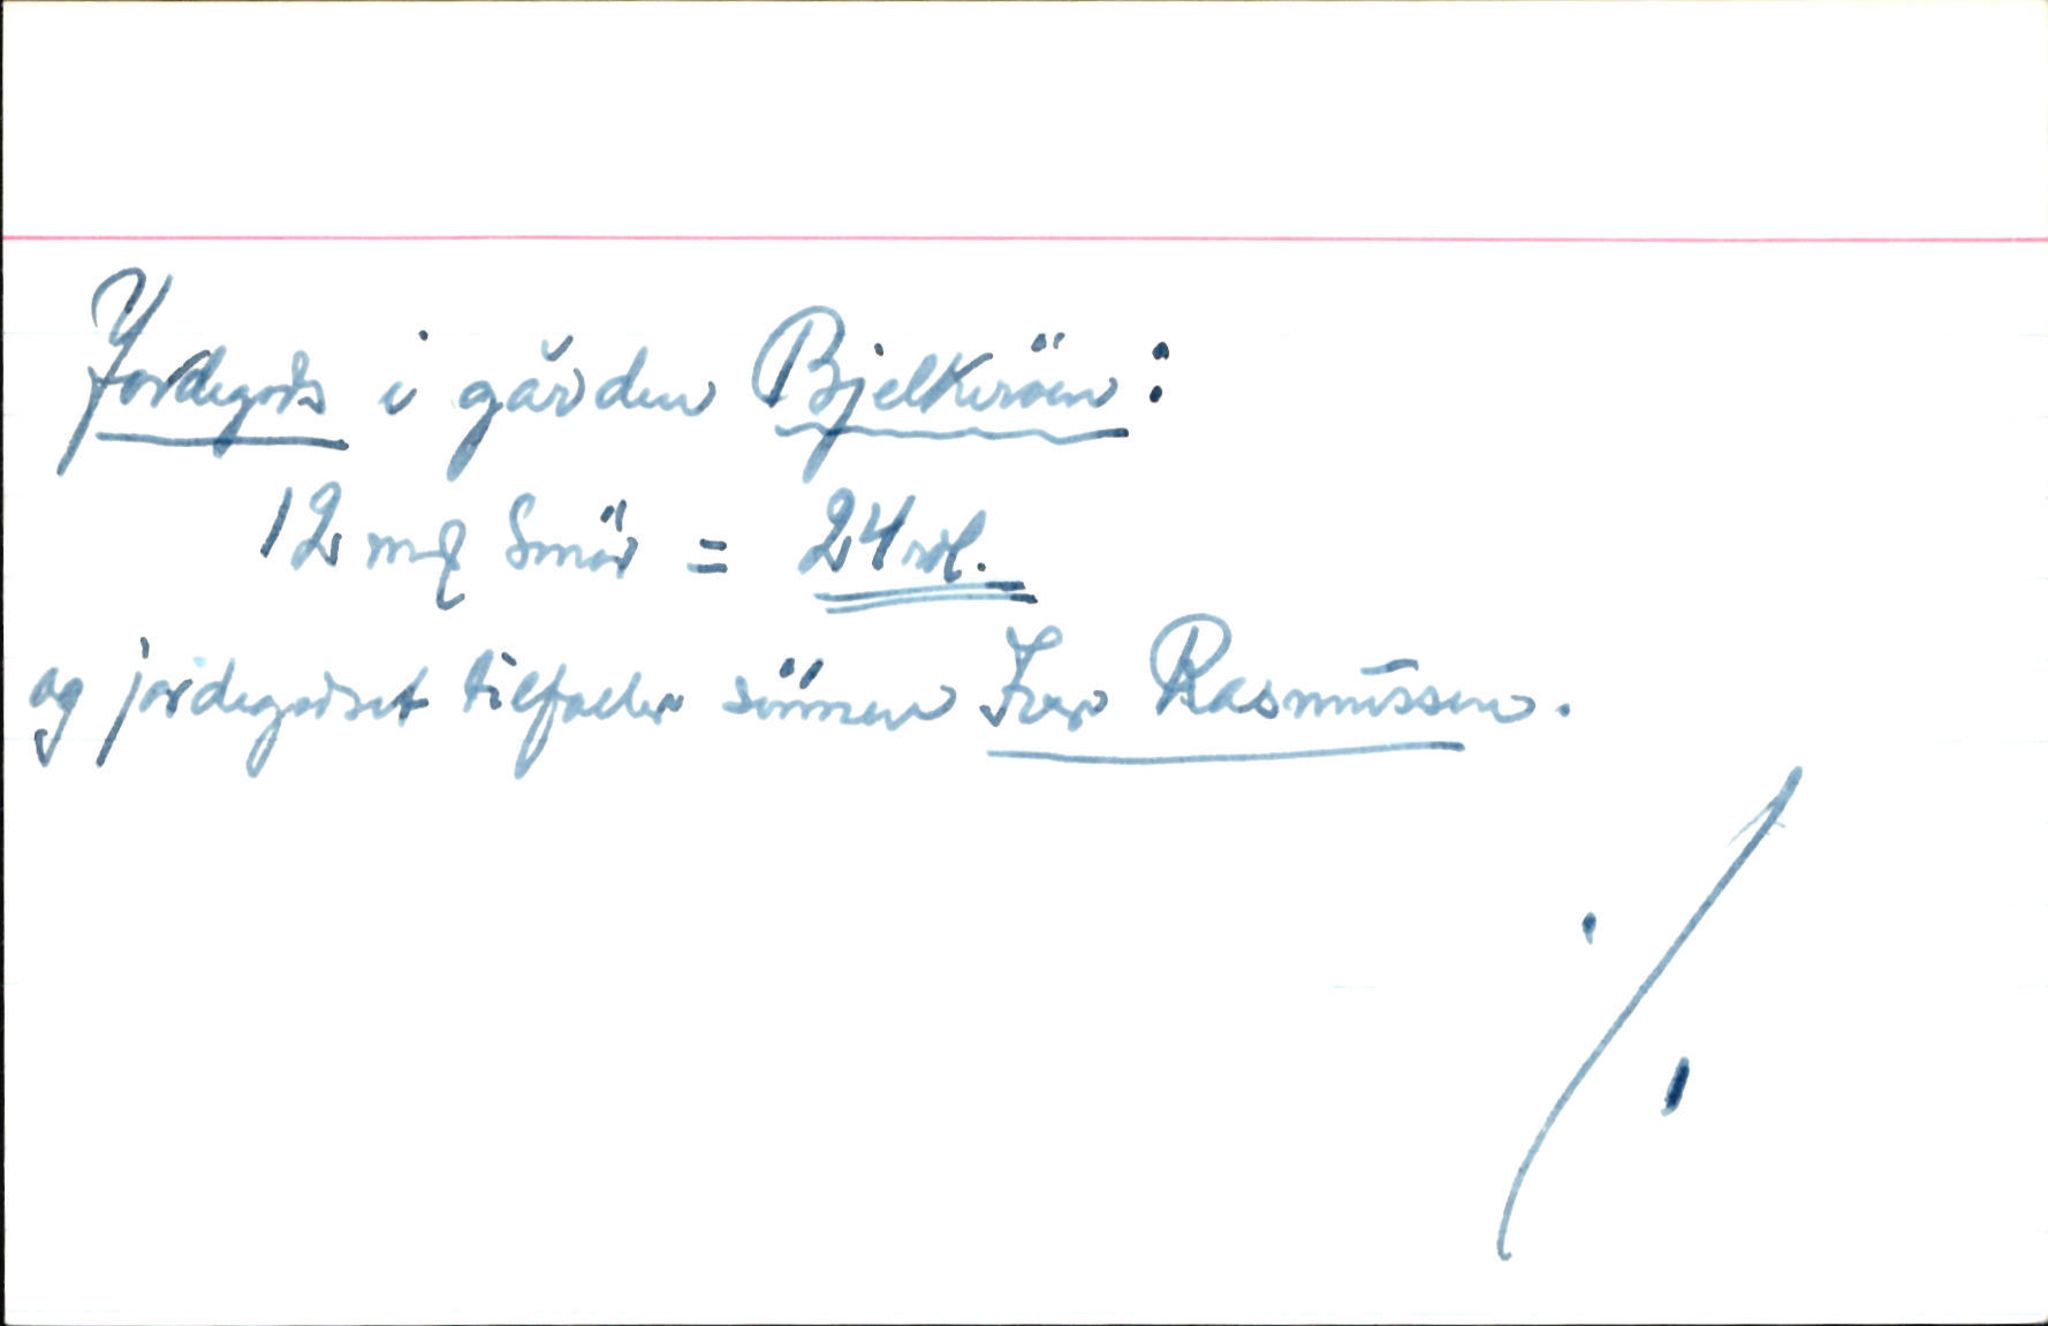 Jordegods i gården Bjelkeröen:
12 mk Smör = 24 rdl.
og jordegodset tilfaller sönnen Iver Rasmussen.
./.